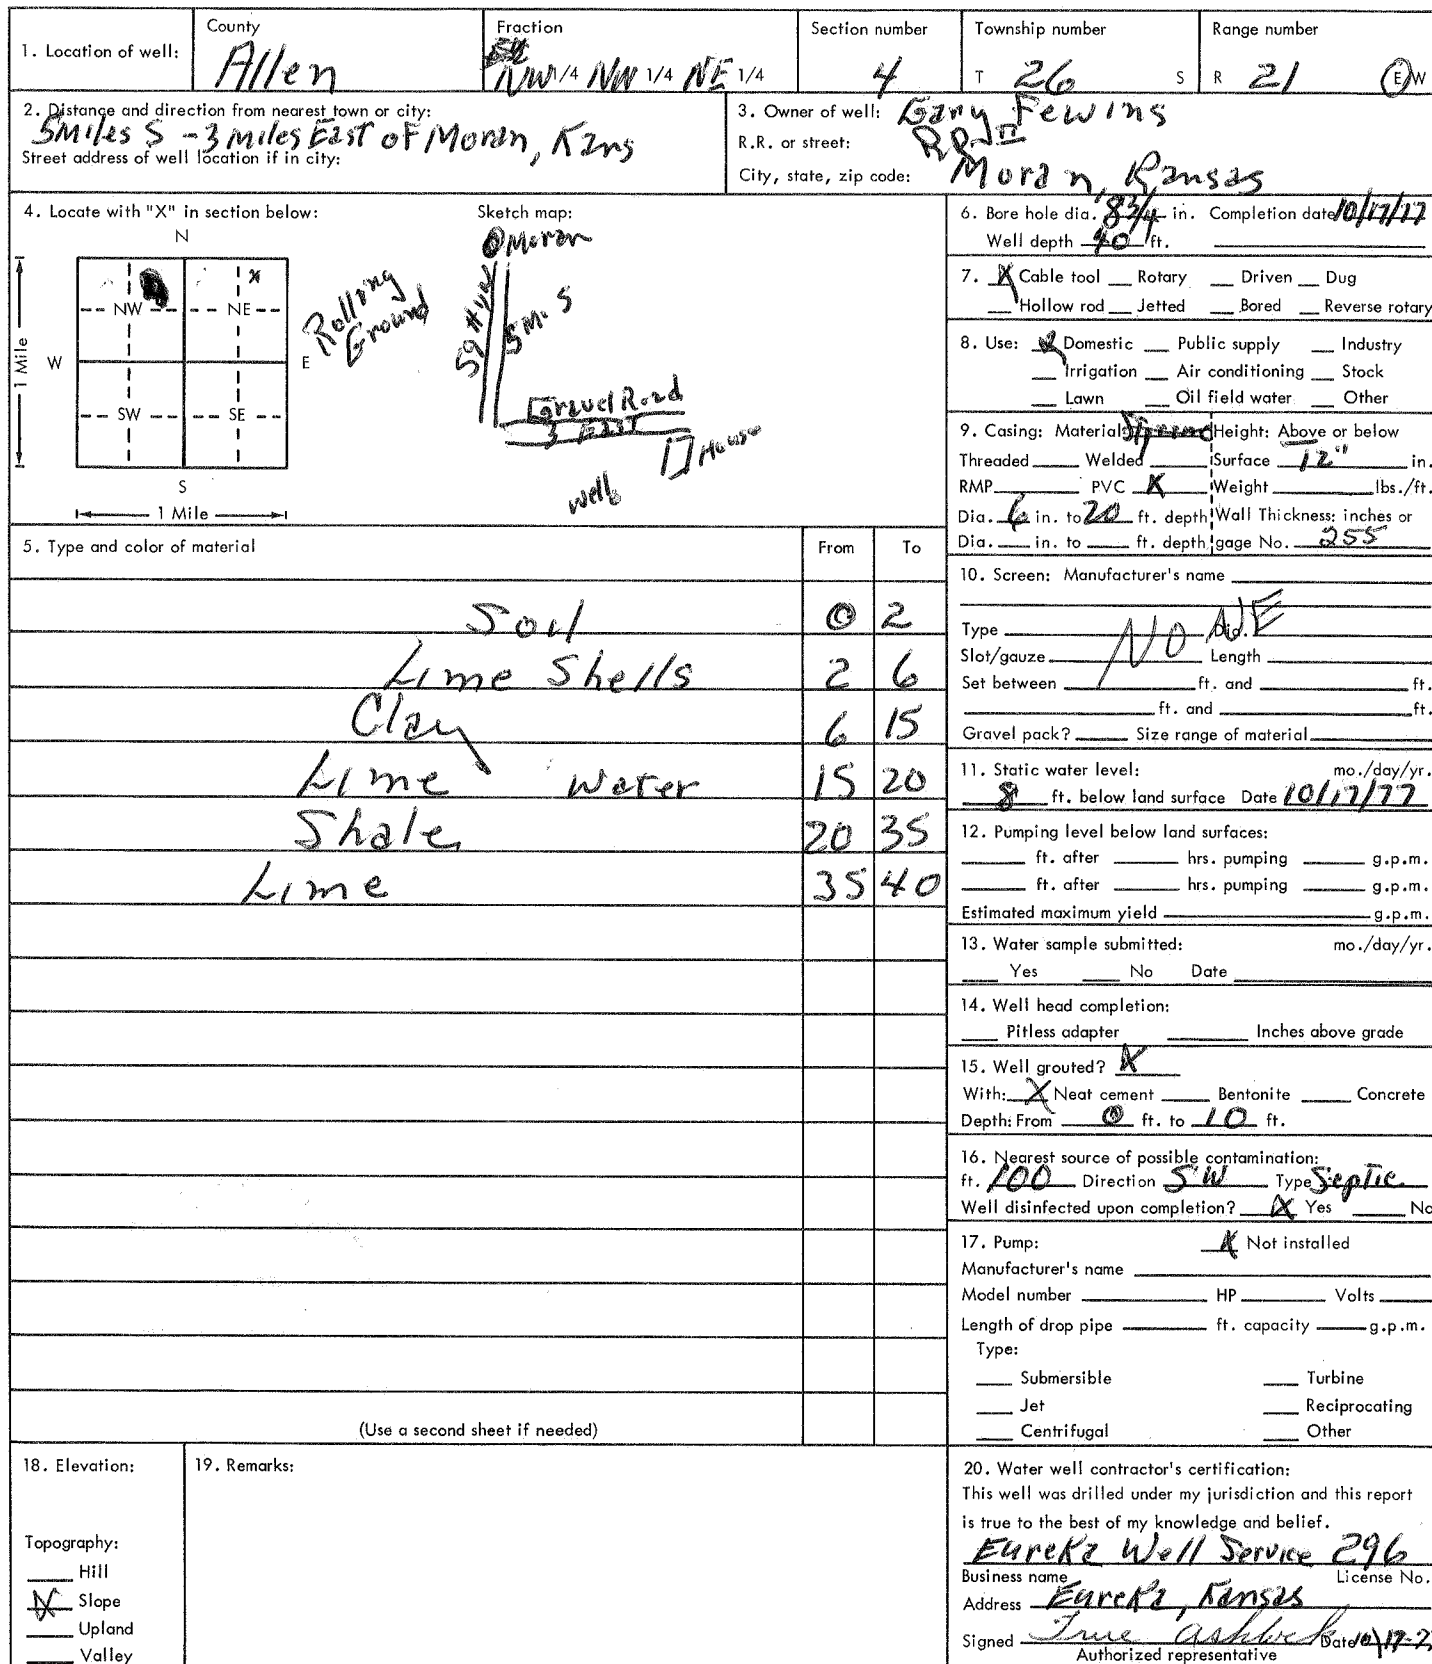 County
Fraction
Section number
Township number
Range number
1. Location of well:
Allen
NW 1/4 NW 1/4 NE 1/4
4
T 26 S
R 21 E W
2. Distance and direction from nearest town or city:
5 Miles S - 3 miles East of Moran, Kans
Street address of well location if in city:
3. Owner of well: Gary Fewins
R.R. or street: RR II
City, state, zip code: Moran, Kansas
4. Locate with "X" in section below:
N
NW NE
W E
SW SE
S
1 Mile
1 Mile
Rolling
Ground
Sketch map:
Moran
59 Hyw
5 M. S
Gravel Road
3 EAST
House
Well
5. Type and color of material From To
Soil 0 2
Lime Shells 2 6
Clay 6 15
Lime Water 15 20
Shale 20 35
Lime 35 40
(Use a second sheet if needed)
6. Bore hole dia. 8 3/4 in. Completion date 10/17/77
Well depth 40 ft.
7. X Cable tool Rotary Driven Dug
Hollow rod Jetted Bored Reverse rotary
8. Use: X Domestic Public supply Industry
Irrigation Air conditioning Stock
Lawn Oil field water Other
9. Casing: Material Height: Above or below
Threaded Welded Surface 12" in.
RMP PVC X Weight lbs./ft.
Dia. 6 in. to 20 ft. depth Wall Thickness: inches or
Dia. in. to ft. depth gage No. 255
10. Screen: Manufacturer's name
NONE
Type Dia.
Slot/gauze Length
Set between ft. and ft.
ft. and ft.
Gravel pack? Size range of material
11. Static water level: mo./day/yr.
8 ft. below land surface Date 10/17/77
12. Pumping level below land surfaces:
ft. after hrs. pumping g.p.m.
ft. after hrs. pumping g.p.m.
Estimated maximum yield g.p.m.
13. Water sample submitted: mo./day/yr.
Yes No Date
14. Well head completion:
Pitless adapter Inches above grade
15. Well grouted? X
With: X Neat cement Bentonite Concrete
Depth: From 0 ft. to 10 ft.
16. Nearest source of possible contamination:
ft. 100 Direction SW Type Septic
Well disinfected upon completion? X Yes No
17. Pump: X Not installed
Manufacturer's name
Model number HP Volts
Length of drop pipe ft. capacity g.p.m.
Type:
Submersible Turbine
Jet Reciprocating
Centrifugal Other
18. Elevation:
Topography:
Hill
X Slope
Upland
Valley
19. Remarks:
20. Water well contractor's certification:
This well was drilled under my jurisdiction and this report
is true to the best of my knowledge and belief.
Eureka Well Service 296
Business name License No.
Address Eureka, Kansas
Signed Date
Authorized representative